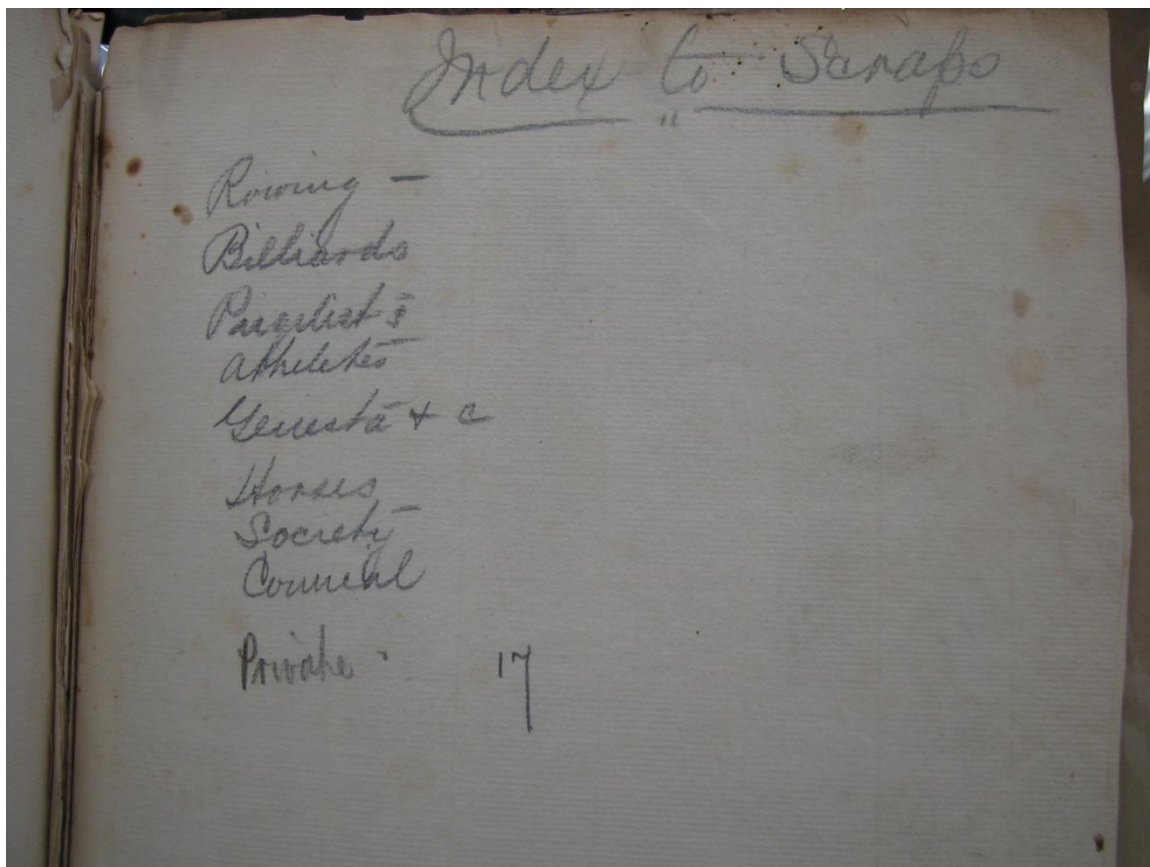 Index to Scraps
Rowing —
Billiards
Pugilists
Athletes
Genesta + c
Horses
Society
Council
Private 17